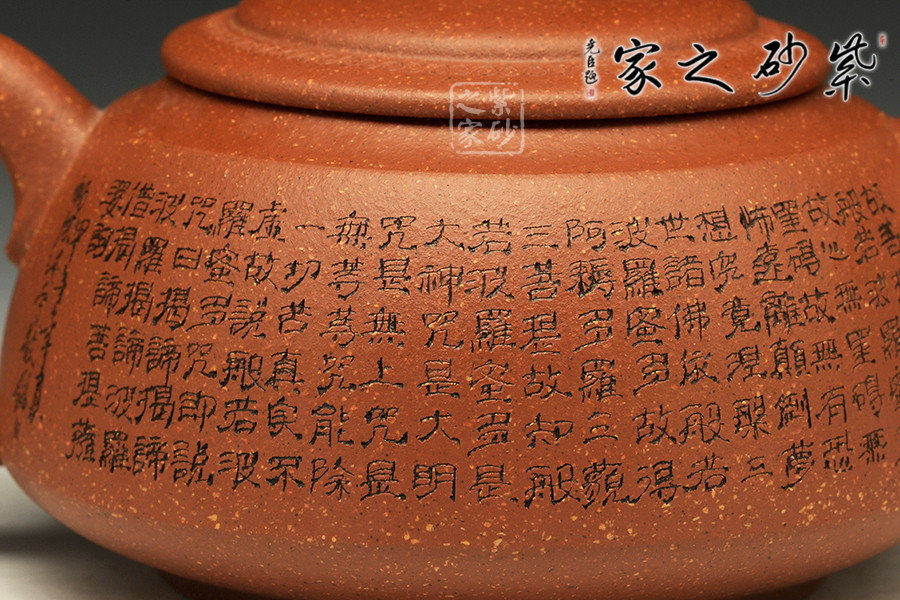 紫砂之家
紫砂之家
般若波羅蜜
故心無罣碍無
罣碍故無有恐
怖遠離顛倒夢
想究竟涅槃三
世諸佛依般若
波羅蜜多故得
阿耨多羅三藐
三菩提故知般
若波羅蜜多是
大神咒是大明
咒是無上咒是
無等等咒能除
一切苦真實不
虛故說般若波
羅蜜多咒即說
咒曰揭諦揭諦
波羅揭諦波羅
僧揭諦菩提薩
婆訶